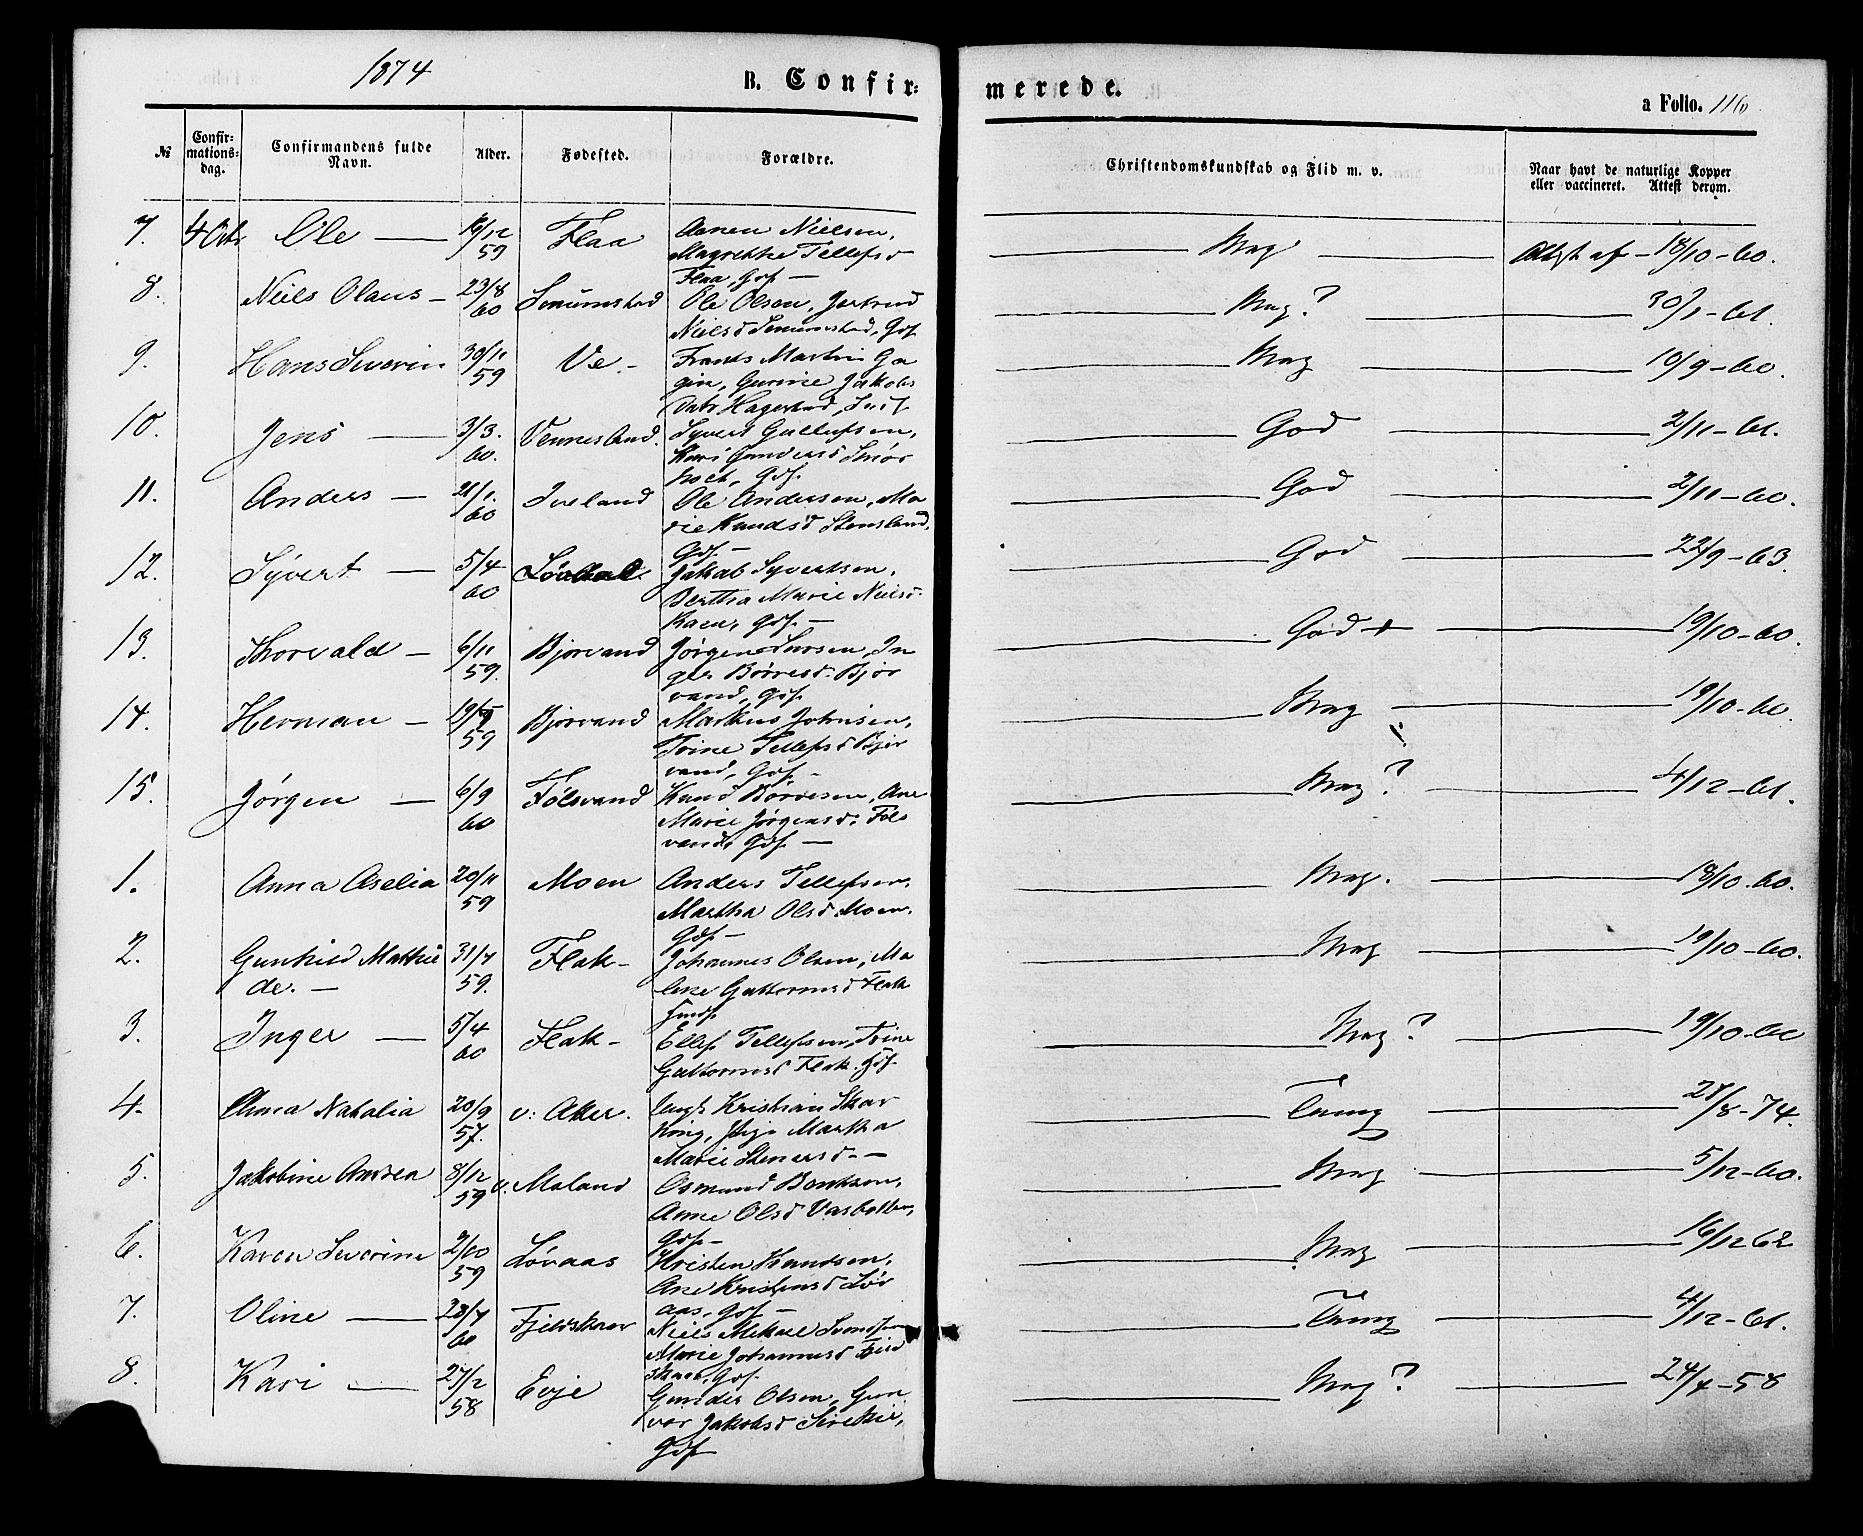 1874
B. Confir=
merede.
a Folio. 116
№
Confir=
mations=
dag.
Confirmandens fulde
Navn.
Alder.
Fødested.
Forældre.
Christendomskundskab og Flid m. v.
Naar havt de naturlige Kopper
eller vaccineret. Attest derom.
7. 4 Octr Ole — 16/12 59 Flaa
Aanen Nielsen,
Magrethe Tellefsd
Flaa, Gdf —
Mag — Attest af — 18/10 - 60.
8. Niels Olaus — 23/8 60
Ole Olsen, Gertrud
Nielsd, Gdf
Mag? — 30/1 - 61.
9. Hans Severin 30/11 59 Ve. -
Frants Martin
Gurine Jakobs
datr
Mag — 10/9 - 60.
10. Jens — 3/3. 60. Vennesland.
Syvert Gullufsen,
Kari Gundersd
Gdf.
God — 2/11 - 61.
11. Anders — 21/1. 60 Iveland
Ole Andersen, Ma
rie Knudsd Stensland,
Gdf —
God — 2/11 - 60.
12. Syvert — 5/4 60
Jakob Syvertsen,
Bertha Marie Nielsd.
Gdf. —
God — 22/9 - 63.
13. Thorvald — 6/11 59. Bjorvand
Jørgen Larsen, In
ger Børresd. Bjor
vand, Gdf.
God + — 19/10 - 60.
14. Herman — 59 Bjorvand
Markus Johnsen,
Trine Tellefsd Bjor
vand, Gdf —
Mag — 19/10 - 60.
15. Jørgen — 6/9 60 Følsvand
Knud Børresen, Ane
Marie Jørgensd. Føls
vand, Gdf —
Mag? — 4/12 - 61.
1. Anna Aselia 20/11 59 Moen
Anders Tellefsen,
Martha Olsd Moen,
Gdf —
Mag. — 18/10 - 60.
2. Gunhild Mathil
de. — 31/7 59. Flak -
Johannes Olsen, Ma
lene Guttormsd Flak
Mag — 19/10 - 60.
3. Inger — 5/4 60 Flak -
Ellef Tellefsen, Trine
Guttormsd Flak. Gdf.
Mag? — 19/10 - 60
4. Anna Natalia 20/9 57.
Ungk Kristian Skar
Pige Martha
Marie Stenersd. —
Taug — 28/8 - 74.
5. Jakobine Andrea 8/12 59 v. Moland
Osmund Bentsen,
Anne Olsd
Gdf —
Mag — 5/12 - 60.
6. Karen Severine 59 Løvaas
Kristen Knudsen,
Ane Kristensd Løv
aas, Gdf —
Mag — 16/12 62
7. Oline — 60 Fjeldskar
Niels Mikael
Marie Johannesd Fjeld
skar, Gdf.
Taug — 4/12 - 61.
8. Kari — 27/2 58 Evje
Gunder Olsen, Gun
vor Jakobsd
Gdf
Mag? — 24/4 - 58